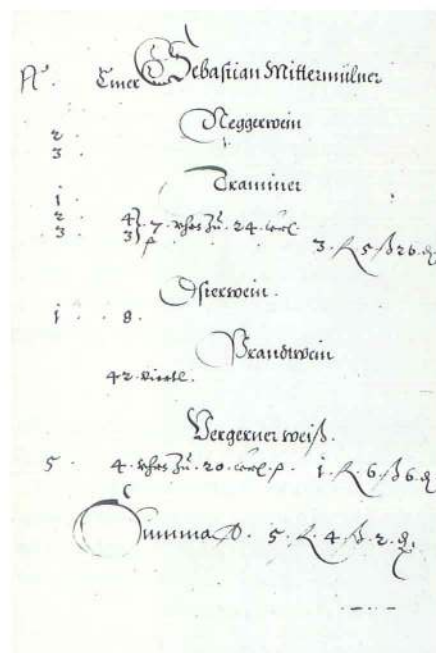 Nº. Emer Sebastian Mittermülner
Neggerwein
2 .
3 .
Traminer
1 .
2 . 4
3 . 3 } . 7 . zu . 24 .
3 . 5 ß 26 . ₰
Osterwein .
1 . . 8 .
Brandtwein
42 . viertl .
Vergerner weiß .
5 . 4 . zu . 20 . 1 . 6 ß 6 . ₰
Summa . 5 . 4 . ß . 2 . ₰ .